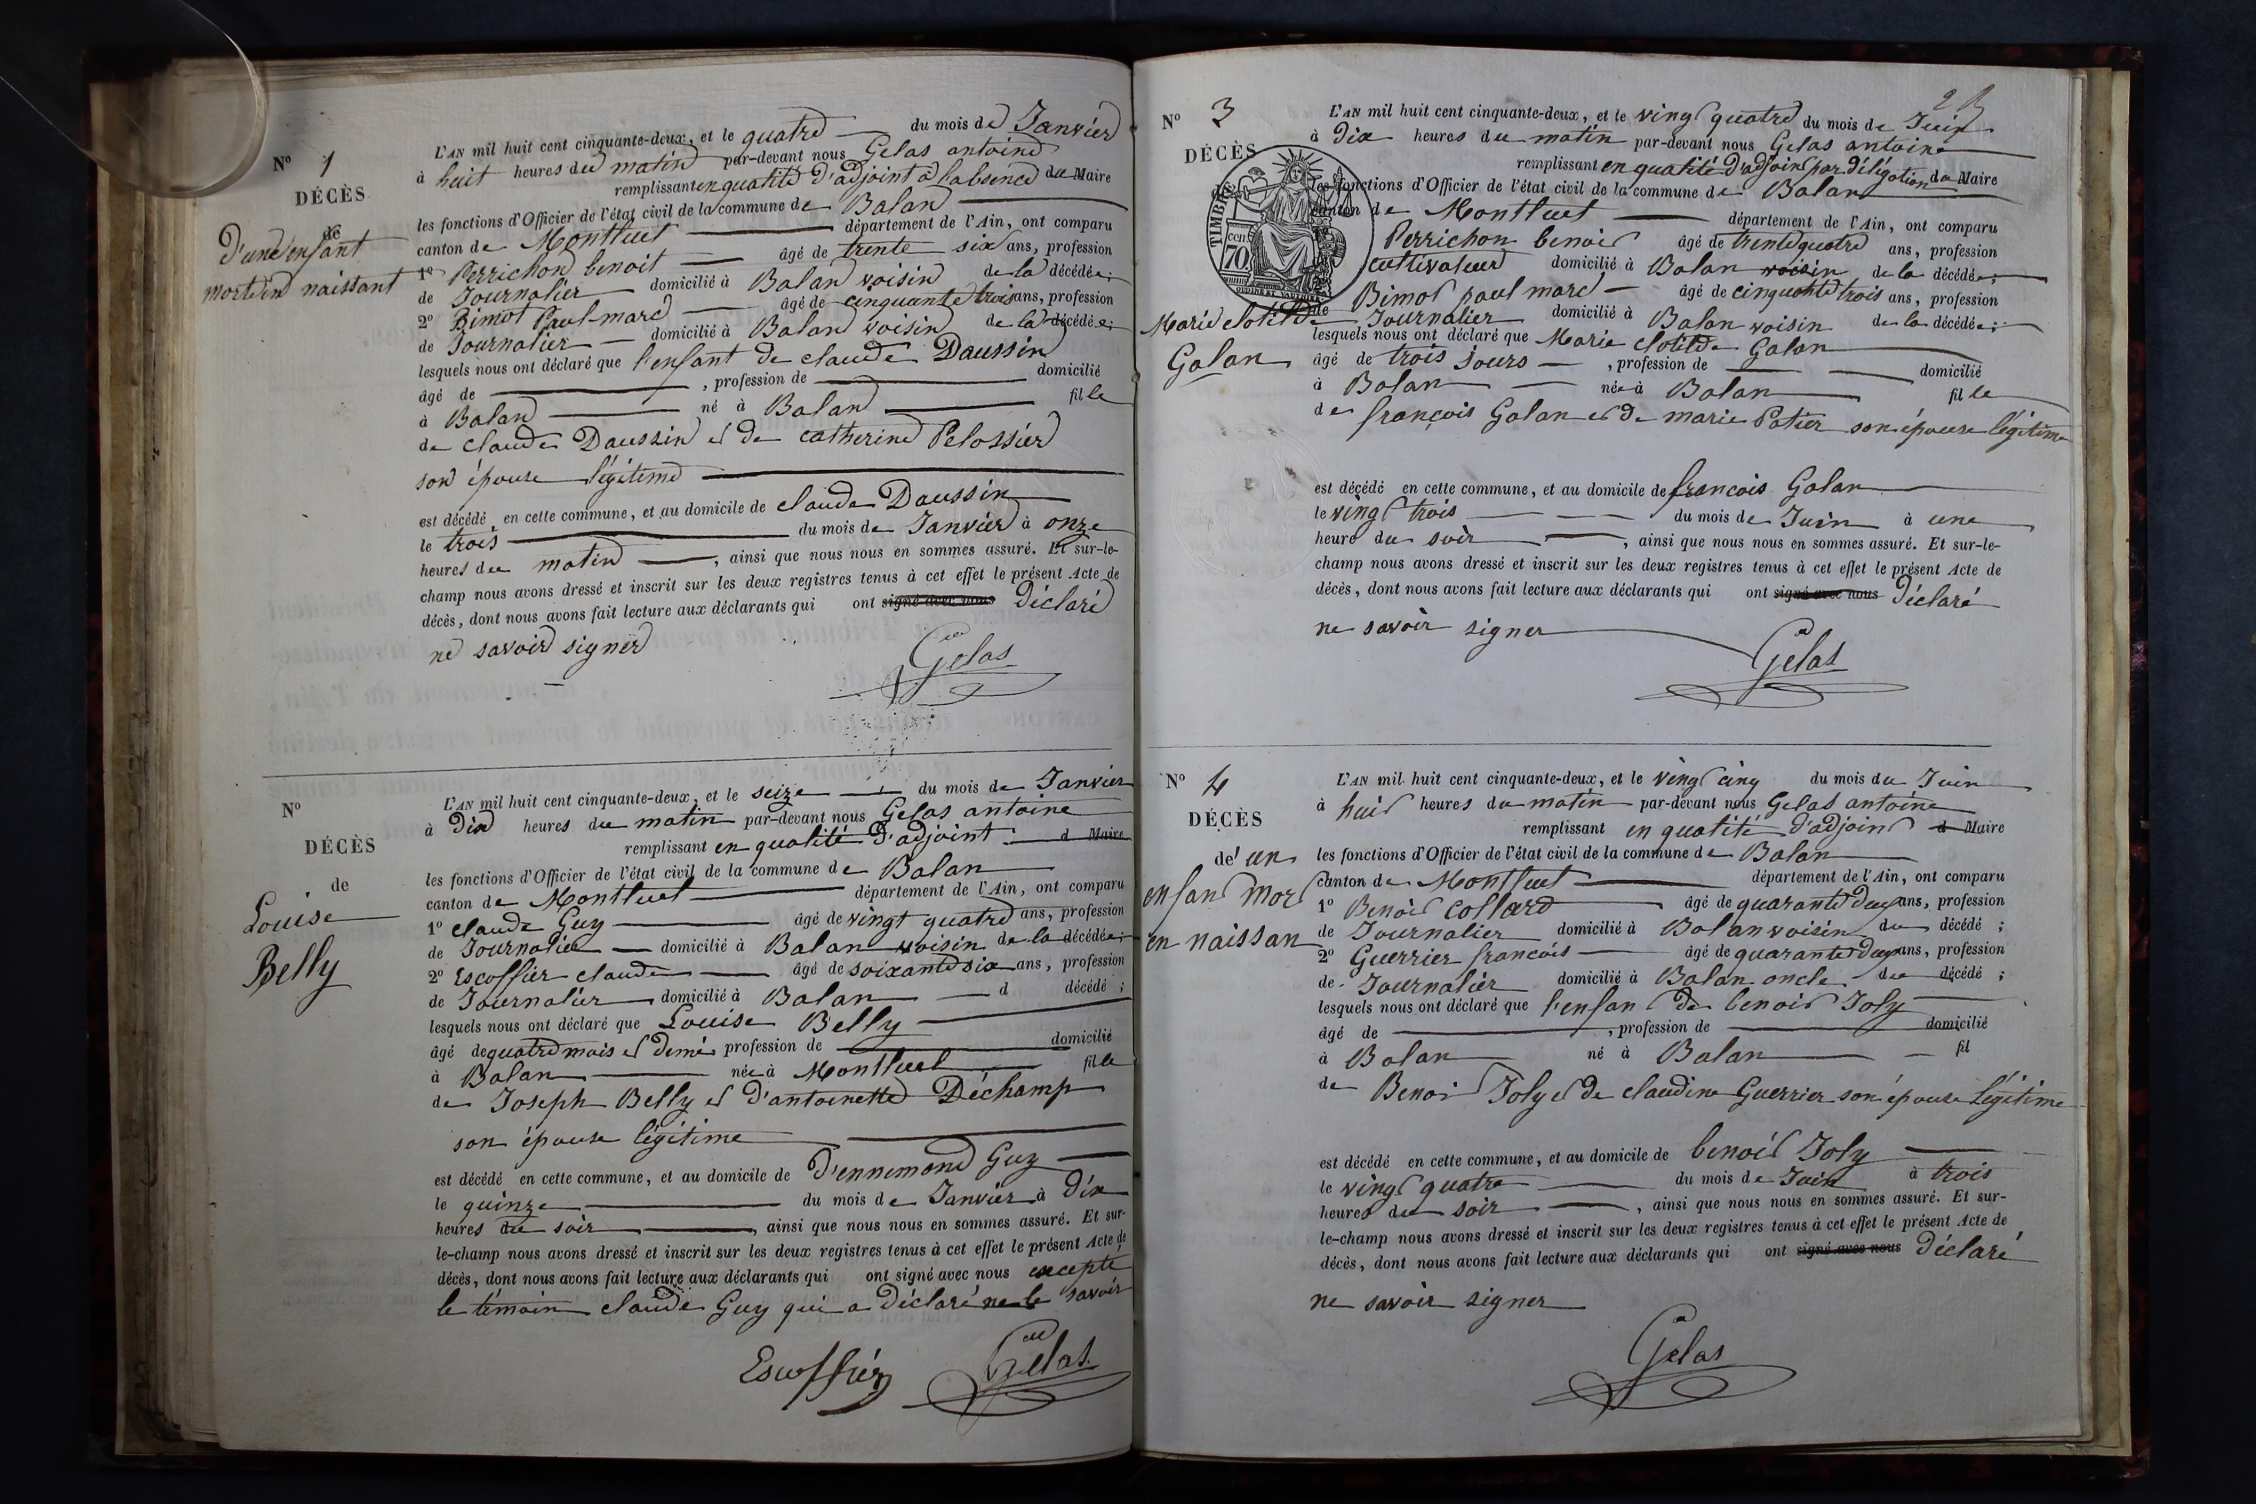 N° 1
DÉCÈS
de
D'une enfant
morte en naissant
L'AN mil huit cent cinquante-deux, et le quatre du mois de Janvier
à huit heures du matin par-devant nous Gelas antoine
remplissant en qualité d'adjoint à l'absence du Maire
les fonctions d'Officier de l'état civil de la commune de Balan
canton de Montluel département de l'Ain, ont comparu
1° Perrichon benoit âgé de trente six ans, profession
de Journalier domicilié à Balan voisin de la décédée;
2° Bimot Paul-marc âgé de cinquante trois ans, profession
de Journalier domicilié à Balan voisin de la décédée;
lesquels nous ont déclaré que l'enfant de claude Daussin
âgé de , profession de domicilié
à Balan né à Balan fille
de claude Daussin et de catherine Pelossier
son épouse légitime
est décédé en cette commune, et au domicile de claude Daussin
le trois du mois de Janvier à onze
heures du matin , ainsi que nous nous en sommes assuré. Et sur-le-
champ nous avons dressé et inscrit sur les deux registres tenus à cet effet le présent Acte de
décès, dont nous avons fait lecture aux déclarants qui ont signé avec nous Déclaré
ne savoir signer
Gelas
N°
DÉCÈS
de
Louise
Belly
L'AN mil huit cent cinquante-deux, et le seize du mois de Janvier
à Dix heures du matin par-devant nous Gelas antoine
remplissant en qualité d'adjoint d Maire
les fonctions d'Officier de l'état civil de la commune de Balan
canton de Montluel département de l'Ain, ont comparu
1° claude Guy âgé de vingt quatre ans, profession
de Journalier domicilié à Balan voisin de la décédée;
2° Escoffier claude âgé de soixante six ans, profession
de Journalier domicilié à Balan d décédé ;
lesquels nous ont déclaré que Louise Belly
âgé de quatre mois et demi profession de domicilié
à Balan née à Montluel fille
de Joseph Belly et d'antoinette Déchamp
son épouse légitime
est décédé en cette commune, et au domicile de D'ennemond Guy
le quinze du mois de Janvier à Dix
heures du soir , ainsi que nous nous en sommes assuré. Et sur-
le-champ nous avons dressé et inscrit sur les deux registres tenus à cet effet le présent Acte de
décès, dont nous avons fait lecture aux déclarants qui ont signé avec nous excepté
le témoin claude Guy qui a Déclaré ne le savoir
Escoffier Gelas
N° 3
DÉCÈS
de
Marie clotilde
Galan
TIMBRE
70
L'AN mil huit cent cinquante-deux, et le vingt quatre du mois de Juin
à Dix heures du matin par-devant nous Gelas antoine
remplissant en qualité d'adjoint par délégation du Maire
les fonctions d'Officier de l'état civil de la commune de Balan
canton de Montluel département de l'Ain, ont comparu
Perrichon benoit âgé de trente quatre ans, profession
cultivateur domicilié à Balan voisin de la décédée;
Bimot paul marc âgé de cinquante trois ans, profession
Journalier domicilié à Balan voisin de la décédée;
lesquels nous ont déclaré que Marie clotilde Galan
âgé de trois jours , profession de domicilié
à Balan née à Balan fille
de françois Galan et de marie Patier son épouse légitime
est décédé en cette commune, et au domicile de françois Galan
le vingt trois du mois de Juin à une
heure du soir , ainsi que nous nous en sommes assuré. Et sur-le-
champ nous avons dressé et inscrit sur les deux registres tenus à cet effet le présent Acte de
décès, dont nous avons fait lecture aux déclarants qui ont signé avec nous Déclaré
ne savoir signer
Gelas
N° 4
DÉCÈS
de un
enfant mort
en naissan
L'AN mil huit cent cinquante-deux, et le vingt cinq du mois du Juin
à huit heures du matin par-devant nous Gelas antoine
remplissant en qualité d'adjoint d Maire
les fonctions d'Officier de l'état civil de la commune de Balan
canton de Montluel département de l'Ain, ont comparu
1° Benoit Collard âgé de quarante deux ans, profession
de Journalier domicilié à Balan voisin du décédé ;
2° Guerrier francois âgé de quarante deux ans, profession
de Journalier domicilié à Balan oncle du décédé ;
lesquels nous ont déclaré que l'enfant de benoit Joly
âgé de , profession de domicilié
à Balan né à Balan fil
de Benoit Joly et de claudine Guerrier son épouse légitime
est décédé en cette commune, et au domicile de benoit Joly
le vingt quatre du mois de Juin à trois
heures du soir , ainsi que nous nous en sommes assuré. Et sur-
le-champ nous avons dressé et inscrit sur les deux registres tenus à cet effet le présent Acte de
décès, dont nous avons fait lecture aux déclarants qui ont signé avec nous Déclaré
ne savoir signer
Gelas